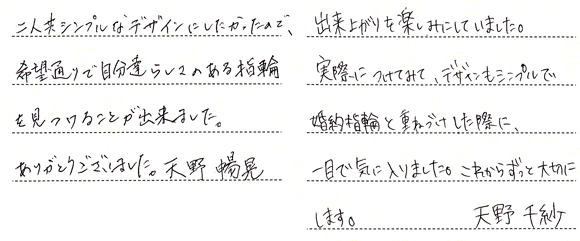 二人共シンプルなデザインにしたかったので、
希望通りで自分達らしさのある指輪
を見つけることが出来ました。
ありがとうございました。天野 暢晃
出来上がりを楽しみにしていました。
実際につけてみて、デザインもシンプルで
婚約指輪と重ねづけした際に、
一目で気に入りました。これからずっと大切に
します。 天野 千紗